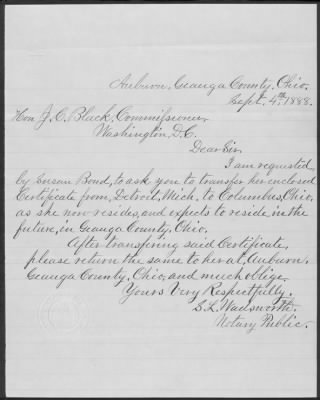 Auburn, Geauga County, Ohio.
Sept. 4th 1888.
Hon J. C. Black, Commissioner,
Washington, D.C.
Dear Sir,
I am requested
by Susan Bond, to ask you to transfer her enclosed
Certificate from, Detroit, Mich, to Columbus, Ohio,
as she now resides, and expects to reside in the
future, in Geauga County, Ohio.
After transfering said Certificate,
please return the same to her at, Auburn.
Geauga County, Ohio, and much oblige.
Yours Very Respectfully,
S. L. Wadsworth.
Notary Public.